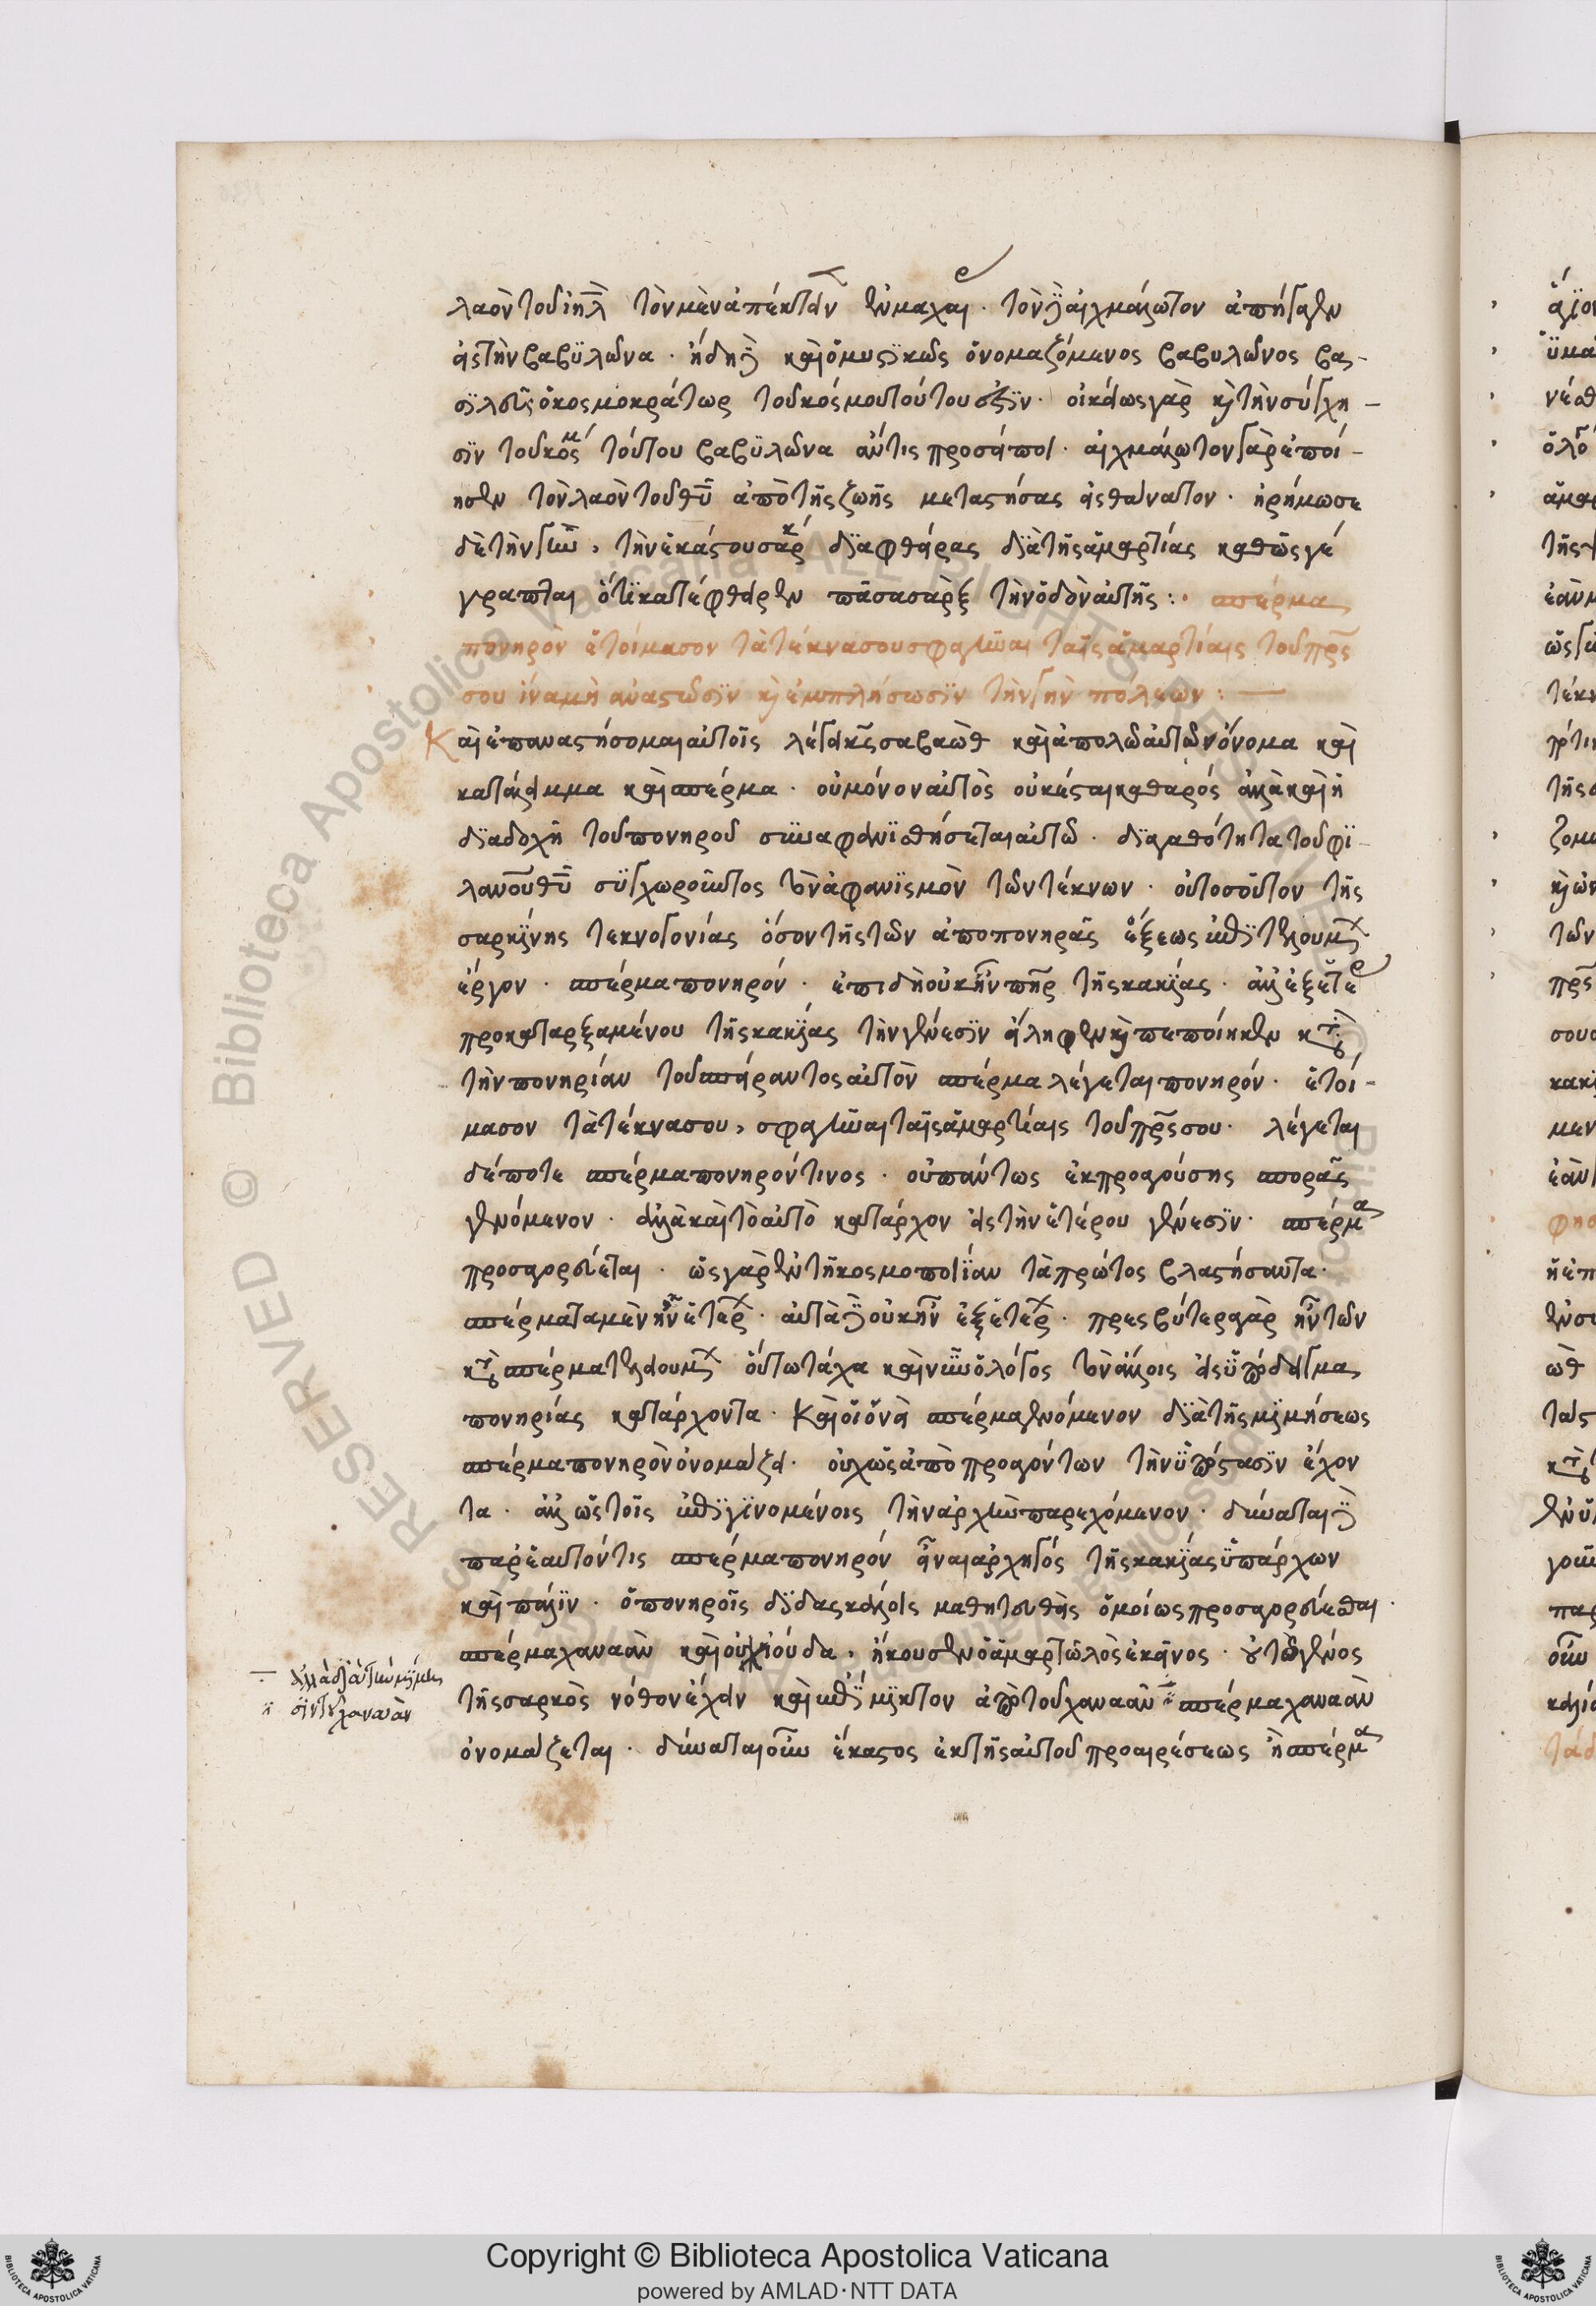 λαὸν τοῦ ἰηλ̅ τὸν μὲν ἀπέκτειν ἐν μαχαιρ. τὸν δὲ αἰχμάλωτον ἀπήγαγεν
εἰς τὴν βαβυλῶνα. ἤδη δὲ καὶ ὁ μυστικῶς ὀνομαζόμενος βαβυλῶνος βα-
σιλεὺς ὁ κοσμοκράτωρ τοῦ κόσμου τούτου ἐστιν. οἰκείως γὰρ κ τὴν σύγχη-
σιν τοῦ κοσμ τούτου βαβυλῶνα ἄν τις προσείποι. αἰχμάλωτον γὰρ ἐποί-
ησεν τὸν λαὸν τοῦ θυ̅ ἀπὸ τῆς ζωῆς μεταστήσας εἰς θάνατον. ἠρήμωσε
δὲ τὴν γῆν, τὴν ἑκάστου σάρκ διαφθείρας διὰ τῆς ἁμαρτίας καθὼς γέ
γραπται ὅτι κατέφθειρεν πᾶσα σὰρξ τὴν ὁδὸν αὐτῆς: σπέρμα
πονηρὸν ἑτοίμασον τὰ τέκνα σου σφαγῆναι ταῖς ἁμαρτίαις τοῦ πρ̅ς
σου ἵνα μὴ ἀναστῶσιν κ ἐμπλήσωσιν τὴν γῆν πόλεων:
Καὶ ἐπαναστήσομαι αὐτοῖς λέγει κς̅ σαβαὼθ καὶ ἀπολῶ αὐτῶν ὄνομα καὶ
κατάλειμμα καὶ σπέρμα. οὐ μόνον αὐτὸς οὐκ ἔσται καθαρός ἀλλὰ καὶ ἡ
διαδοχὴ τοῦ πονηροῦ συναφανισθήσεται αὐτῶ. δι ἀγαθότητα τοῦ φι-
λαν̅ου θυ̅ συγχωροῦντος τὸν ἀφανισμὸν τῶν τέκνων. οὐ τοσοῦτον τῆς
σαρκίνης τεκνογονίας ὅσον τῆς τῶν ἀπο πονηρᾶς ἕξεως
ἔργον. σπέρμα πονηρόν. ἐπιδὴ οὐκ ἦν πηρ̅ τῆς κακίας. ἀλλ ἐξ ἑτέρ
προκαταρξαμένου τῆς κακίας τὴν γένεσιν εἴληφεν κ πεποίηκεν κατὰ
τὴν πονηρίαν τοῦ σπείραντος αὐτὸν σπέρμα λέγεται πονηρόν. ἑτοί-
μασον τὰ τέκνα σου, σφαγῆναι ταῖς ἁμαρτίαις τοῦ πρ̅ς σου. λέγεται
δέποτε σπέρμα πονηρόν τινος. οὐ πάντως ἐκ προαγούσης σπορᾶς
γενόμενον. ἀλλὰ καὶ τὸ αὐτὸ κατάρχον εἰς τὴν ἑτέρου γένεσιν. σπέρμα
προσαγορεύεται. ὡς γὰρ ἐν τῆ κοσμοποιίαν τὰ πρώτος βλαστήσαντα.
σπέρματα μὲν ἦν ἑτέρ. αὐτὰ δὲ οὐκ ἦν ἐξ ἑτέρ. πρεσβύτερα γὰρ ἦν τῶν
κατὰ σπέρμα οὕτω τάχα καὶ νῦν ὁ λόγος τὸν ἄλλοις εἰς ὑπόδειγμα
πονηρίας κατάρχοντα. Καὶ οἱονεὶ σπέρμα γενόμενον διὰ τῆς μιμήσεως
σπέρμα πονηρὸν ὀνομάζει. οὐχ ὡς ἀπὸ προαγόντων τὴν ὑπόστασιν ἔχον
τα. ἀλλ ὡς τοῖς ἐπιγινομένοις τὴν ἀρχὴν παρεχόμενον. δύναται δὲ
παρ ἑαυτόν τις σπέρμα πονηρόν εἶναι ἀρχηγός τῆς κακίας ὑπάρχων
καὶ πάλιν. ὁ πονηροῖς διδασκάλοις μαθητευθεὶς ὁμοίως προσαγορεύεσθαι.
σπέρμα χαναὰν καὶ οὐχ ἰούδα, ἤκουσεν ὁ ἁμαρτωλὸς ἐκεῖνος. οὐ τῶ γένος
τῆς σαρκὸς νόθον ἔχειν καὶ ἐπίμικτον ἀπὸ τοῦ χαναάν σπέρμα χαναὰν
ὀνομάζεται. δύναται οὖν ἕκαστος ἐκ τῆς αὐτοῦ προαιρέσεως ἢ σπέρμα
ἀλλὰ διὰ τὴν μίμη
σιν τοῦ χαναὰν
Copyright © Biblioteca Apostolica Vaticana
powered by AMLAD·NTT DATA